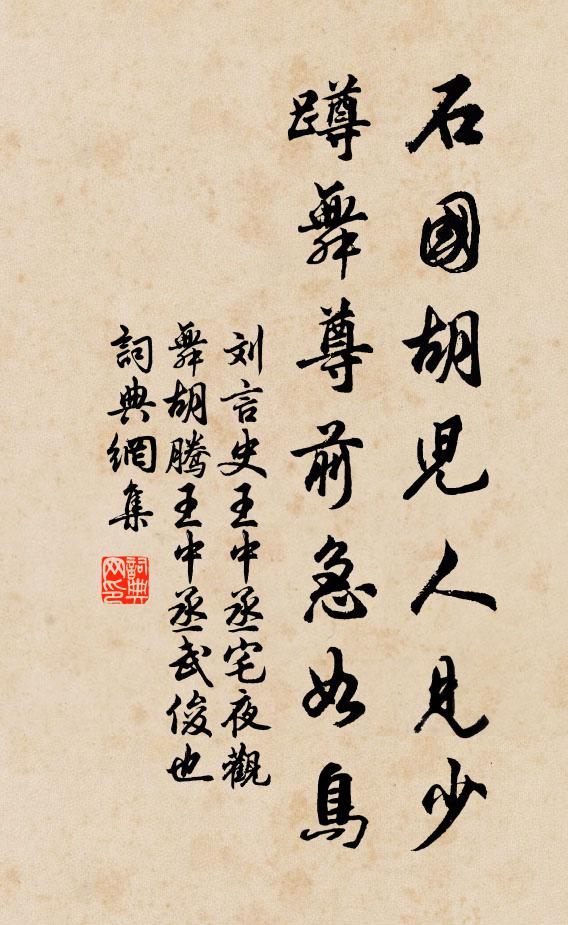 石國胡兒人見少
蹲舞尊前急如鳥
刘言史王中丞宅夜觀
舞胡腾王中丞武俊也
詞典網集
詞典网印